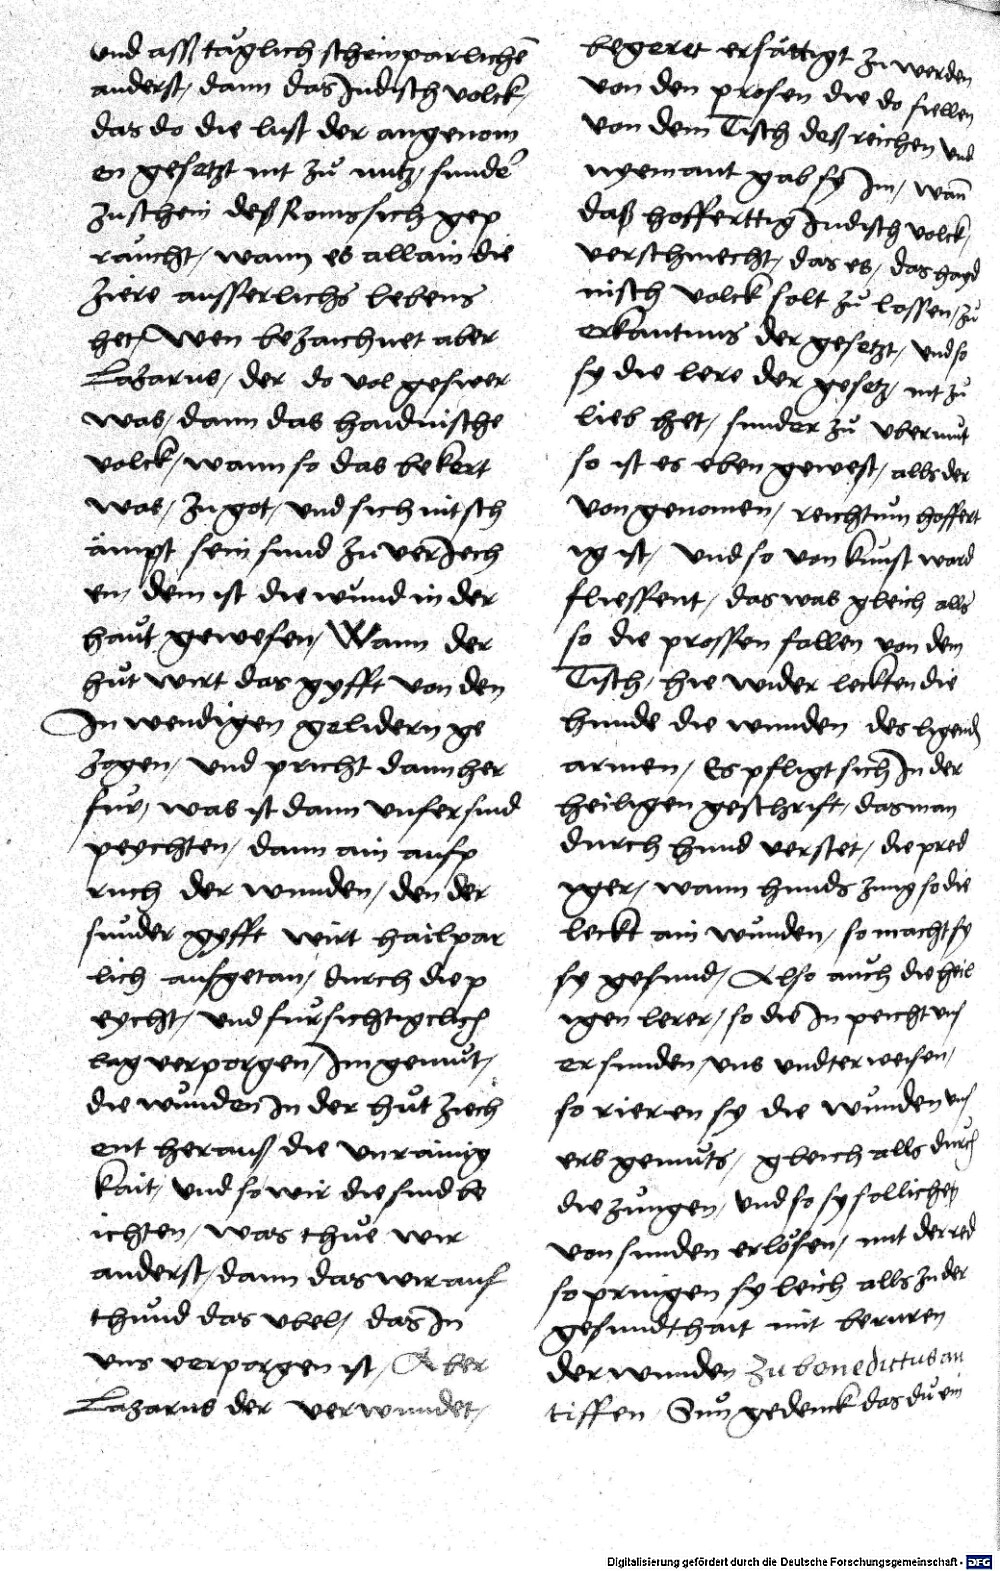 und asß täglich scheinparlichē
anderst, dann das Judisch volck,
das do die lust der angenom
en gesetzt nit zů nutz, sunder
zu schein deß Romssich gep
raucht, wann es allain die
ziere ausserlichs lebens
het, Wen bezaichnet aber
Lazarus, der do vol geswer
was, dann das haidnische
volck, wann so das bekert
was, zu got, und sich nit sch
ämpt sein sund zu verJech
en, dem ist die wund in der
haut gewesen, Wann der
hůt wirt das gyfft von den
Inwendigen gelidern ge
zogen, und pricht dann her
fur, was ist dann unser sind
peychten, dann ain aufp
ruch der wunden, den der
sunder gyfft wirt hailpar
lich aufgetan, durch die p
eycht, und fursichtigclich
lag verporgen, Im gemůt,
die wunden In der hůt ziech
ent herauß die unrainig
kait, und so wir die sind be
ichten, was thue wir
anderst, dann das wir auf
thund das ubel, das In
uns verporgen ist, Aber
Lazarus der verwundet,
begeret ersättigt zu werden
von den prosen die do fiellen
von dem Tisch deß reichen und
nyemant gab sy Im, wañ
daß hofferttig Judisch volck,
verschmecht, das es, das hayd
nisch volck solt zů lassen, zů
erkantnus der gesetzt, und so
sy die lere der gesetz, nit zů
lieb het, sunder zů ubermůt
so ist es eben gewest, alls der
von genomen, reichtum hoffert
ig ist, und so von kunst ward
fliessent, das was gleich alls
so die prossen fallen von dem
Tisch, hie wider leckten die
hunde die wunden des ligend
armen, Es pfligt sich In der
heiligen geschrift, das man
durch hund verstet, die pred
iger, wann hunds zung so die
leckt ain wunden, so macht sy
sy gesund, Also auch die heil
igen lerer, so die In peicht uns
er sunden, uns undterweisen,
so rieren sy die wunden uns
ers gemuts, gleich alls durch
die zungen, und so sy sollichen
von sunden erlösen, mit der red
so pringen sy leich alls zu der
gesundthait mit beruren
der wunden zu benedictus an
tiffen Sun gedenck das du ein
Digitalisierung gefördert durch die Deutsche Forschungsgemeinschaft - DFG